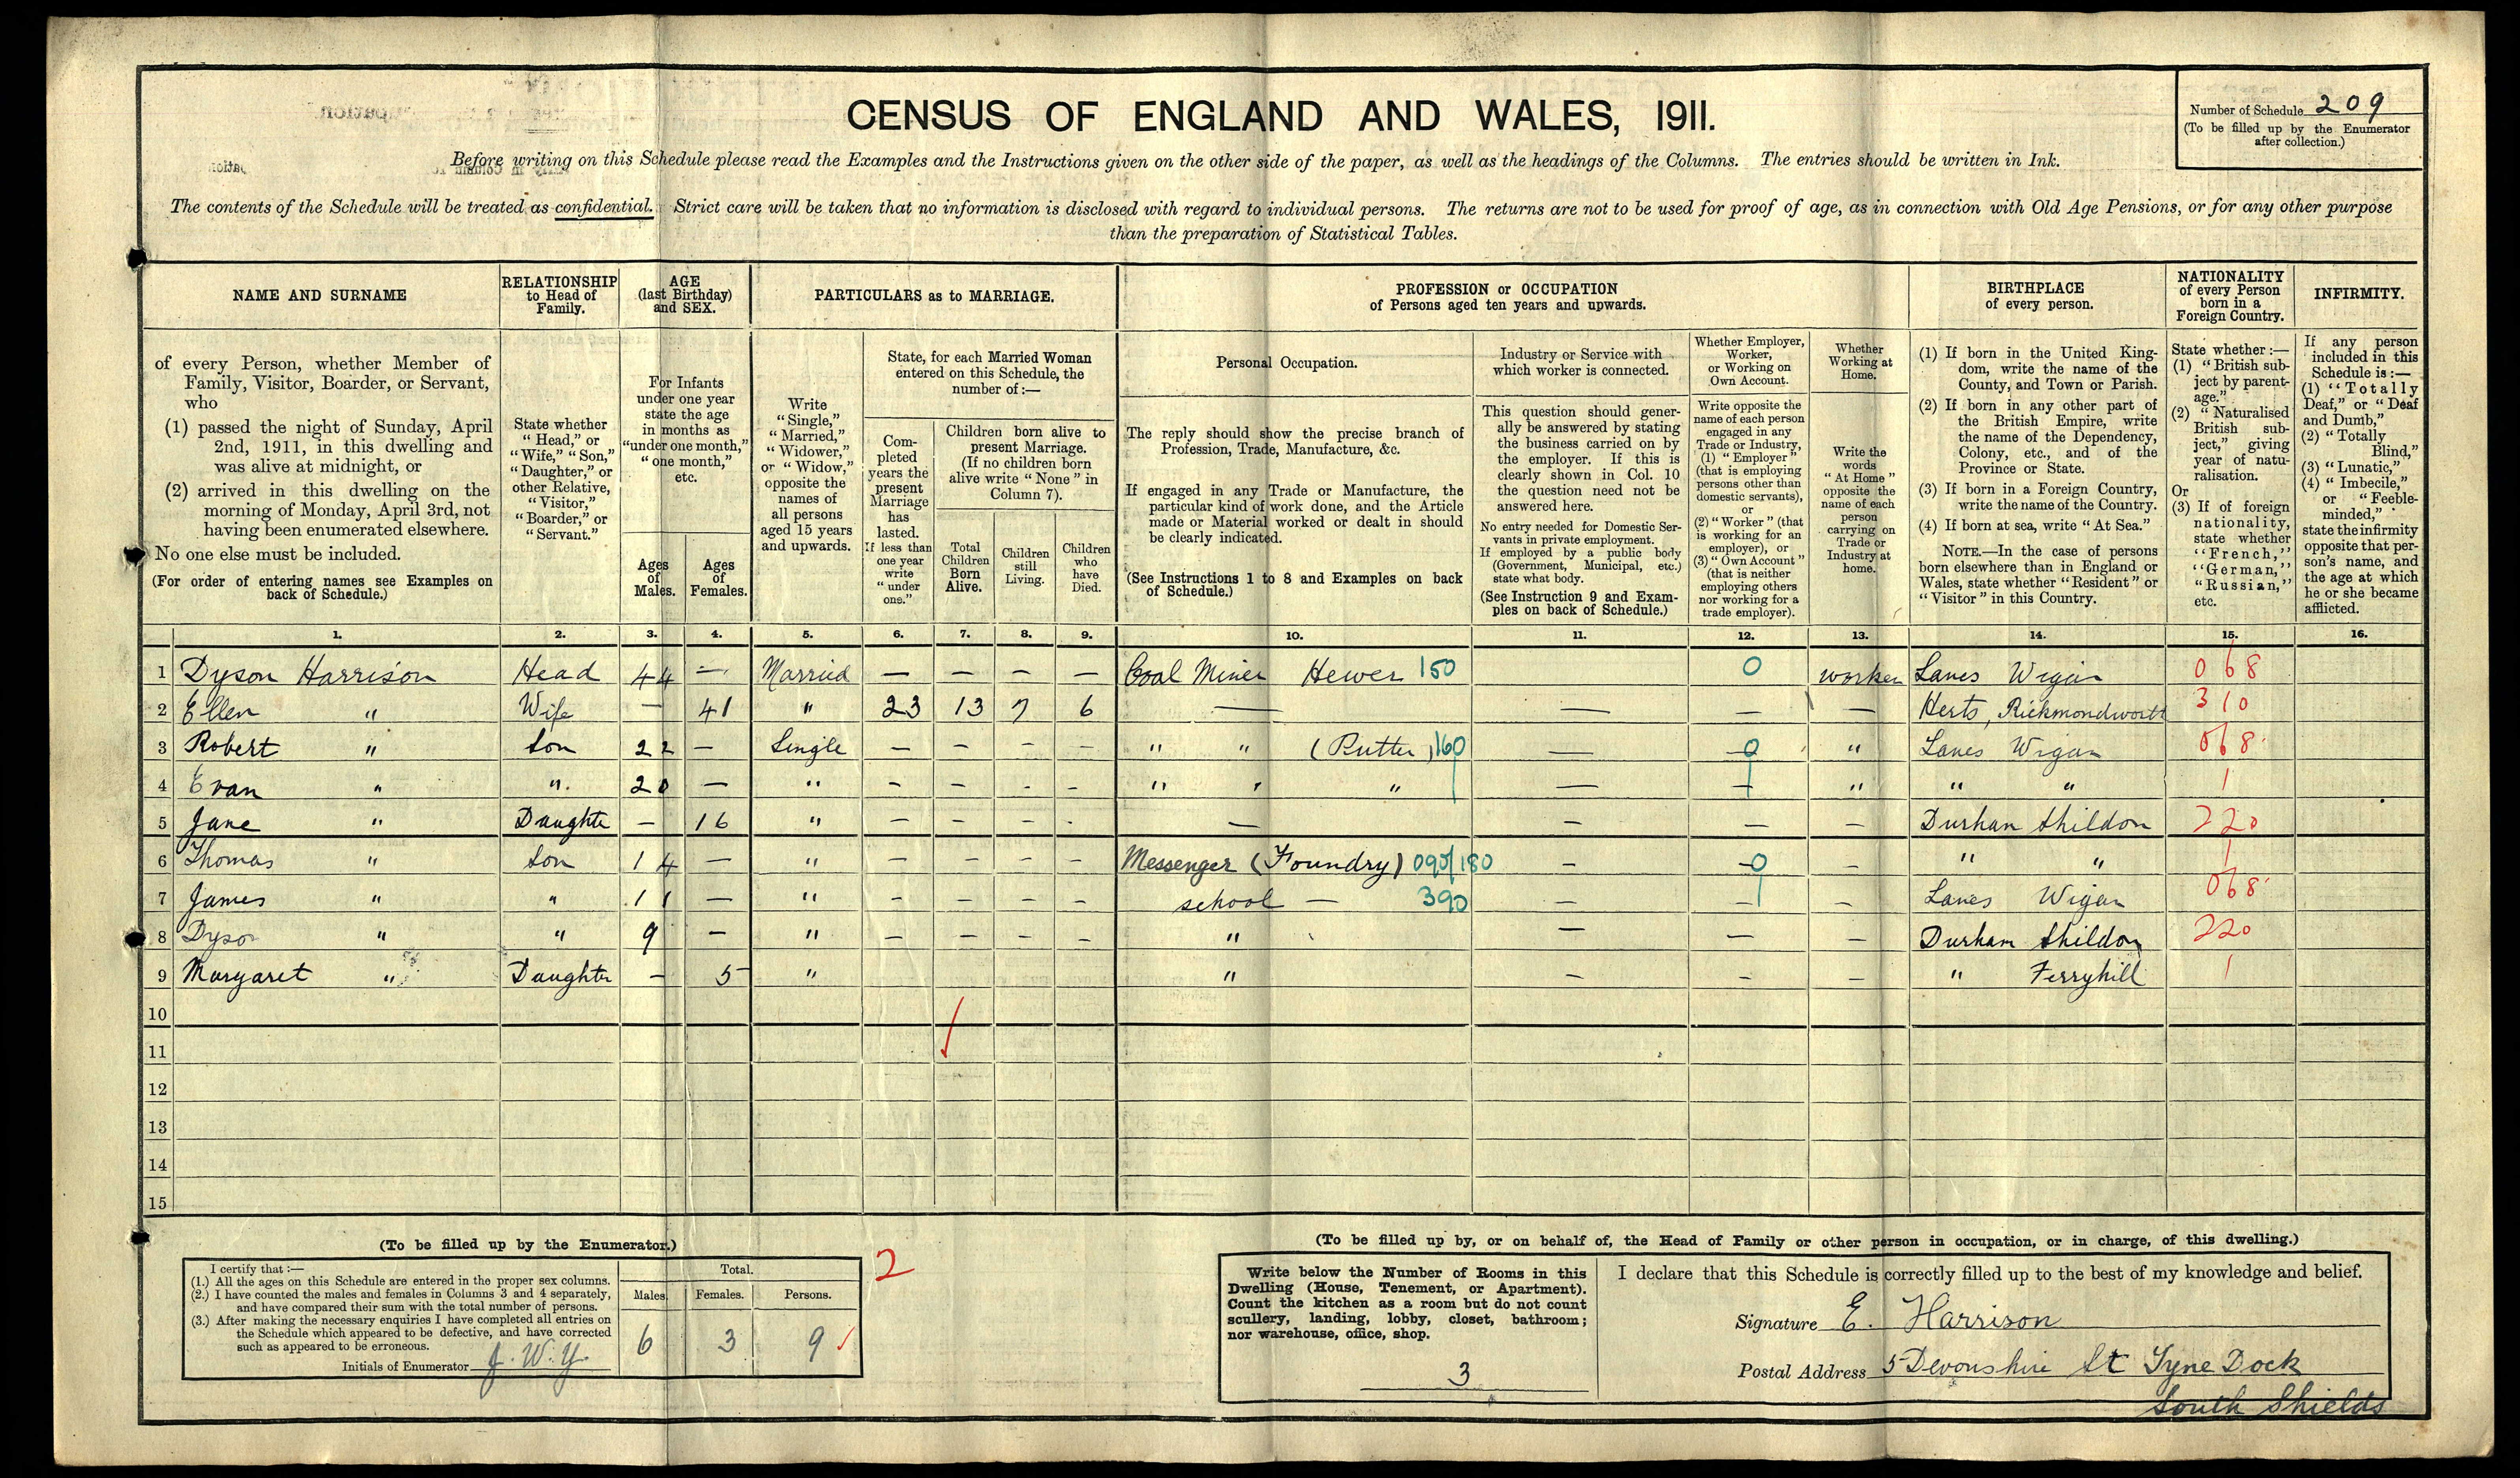 CENSUS OF ENGLAND AND WALES, 1911.
Number of Schedule 209
(To be filled up by the Enumerator
after collection.)
Before writing on this Schedule please read the Examples and the Instructions given on the other side of the paper, as well as the headings of the Columns. The entries should be written in Ink.
The contents of the Schedule will be treated as confidential. Strict care will be taken that no information is disclosed with regard to individual persons. The returns are not to be used for proof of age, as in connection with Old Age Pensions, or for any other purpose
than the preparation of Statistical Tables.
NAME AND SURNAME
of every Person, whether Member of
Family, Visitor, Boarder, or Servant,
who
(1) passed the night of Sunday, April
2nd, 1911, in this dwelling and
was alive at midnight, or
(2) arrived in this dwelling on the
morning of Monday, April 3rd, not
having been enumerated elsewhere.
No one else must be included.
(For order of entering names see Examples on
back of Schedule.)
RELATIONSHIP
to Head of
Family.
State whether
"Head," or
"Wife," "Son,"
"Daughter," or
other Relative,
"Visitor,"
"Boarder," or
"Servant."
AGE
(last Birthday)
and SEX.
For Infants
under one year
state the age
in months as
"under one month,"
"one month,"
etc.
Ages
of
Males.
Ages
of
Females.
PARTICULARS as to MARRIAGE.
Write
"Single,"
"Married,"
"Widower,"
or "Widow,"
opposite the
names of
all persons
aged 15 years
and upwards.
State, for each Married Woman
entered on this Schedule, the
number of:—
Com-
pleted
years the
present
Marriage
has
lasted.
If less than
one year
write
"under
one."
Children born alive to
present Marriage.
(If no children born
alive write "None" in
Column 7).
Total
Children
Born
Alive.
Children
still
Living.
Children
who
have
Died.
PROFESSION or OCCUPATION
of Persons aged ten years and upwards.
Personal Occupation.
The reply should show the precise branch of
Profession, Trade, Manufacture, &c.
If engaged in any Trade or Manufacture, the
particular kind of work done, and the Article
made or Material worked or dealt in should
be clearly indicated.
(See Instructions 1 to 8 and Examples on back
of Schedule.)
Industry or Service with
which worker is connected.
This question should gener-
ally be answered by stating
the business carried on by
the employer. If this is
clearly shown in Col. 10
the question need not be
answered here.
No entry needed for Domestic Ser-
vants in private employment.
If employed by a public body
(Government, Municipal, etc.)
state what body.
(See Instruction 9 and Exam-
ples on back of Schedule.)
Whether Employer,
Worker,
or Working on
Own Account.
Write opposite the
name of each person
engaged in any
Trade or Industry,
(1) "Employer"
(that is employing
persons other than
domestic servants),
or
(2) "Worker" (that
is working for an
employer), or
(3) "Own Account"
(that is neither
employing others
nor working for a
trade employer).
Whether
Working at
Home.
Write the
words
"At Home"
opposite the
name of each
person
carrying on
Trade or
Industry at
home.
BIRTHPLACE
of every person.
(1) If born in the United King-
dom, write the name of the
County, and Town or Parish.
(2) If born in any other part of
the British Empire, write
the name of the Dependency,
Colony, etc., and of the
Province or State.
(3) If born in a Foreign Country,
write the name of the Country.
(4) If born at sea, write "At Sea."
NOTE.—In the case of persons
born elsewhere than in England or
Wales, state whether "Resident" or
"Visitor" in this Country.
NATIONALITY
of every Person
born in a
Foreign Country.
State whether :—
(1) "British sub-
ject by parent-
age."
(2) "Naturalised
British sub-
ject," giving
year of natu-
ralisation.
Or
(3) If of foreign
nationality,
state whether
"French,"
"German,"
"Russian,"
etc.
INFIRMITY.
If any person
included in this
Schedule is :—
(1) "Totally
Deaf," or "Deaf
and Dumb,"
(2) "Totally
Blind,"
(3) "Lunatic,"
(4) "Imbecile,"
or "Feeble-
minded,"
state the infirmity
opposite that per-
son's name, and
the age at which
he or she became
afflicted.
1. 2. 3. 4. 5. 6. 7. 8. 9. 10. 11. 12. 13. 14. 15. 16.
1 Dyson Harrison Head 44 — Married — — — — Coal Miner Hewer 150 0 worker Lancs Wigan 068
2 Ellen " Wife — 41 " 23 13 7 6 — — — — Herts, Rickmondworth 310
3 Robert " Son 22 — Single — — — — " " (Putter) 160 — 0 " Lancs Wigan 068
4 Evan " " 20 — " — — - - " " " — — " " " 1
5 Jane " Daughter — 16 " — — - - — — — — Durham Shildon 220
6 Thomas " Son 14 — " — — — — Messenger (Foundry) 090/180 — 0 — " " 1
7 James " " 11 — " - — — — school — 390 — — — Lancs Wigan 068
8 Dyson " " 9 — " — — — — " — — — Durham Shildon 220
9 Margaret " Daughter — 5 " " — — — " Ferryhill 1
10
11
12
13
14
15
(To be filled up by the Enumerator.)
I certify that :—
(1.) All the ages on this Schedule are entered in the proper sex columns.
(2.) I have counted the males and females in Columns 3 and 4 separately,
and have compared their sum with the total number of persons.
(3.) After making the necessary enquiries I have completed all entries on
the Schedule which appeared to be defective, and have corrected
such as appeared to be erroneous.
Initials of Enumerator J. W. Y.
Total.
Males. Females. Persons.
6 3 9
2
(To be filled up by, or on behalf of, the Head of Family or other person in occupation, or in charge, of this dwelling.)
Write below the Number of Rooms in this
Dwelling (House, Tenement, or Apartment).
Count the kitchen as a room but do not count
scullery, landing, lobby, closet, bathroom;
nor warehouse, office, shop.
3
I declare that this Schedule is correctly filled up to the best of my knowledge and belief.
Signature E. Harrison
Postal Address 5 Devonshire St Tyne Dock
South Shields